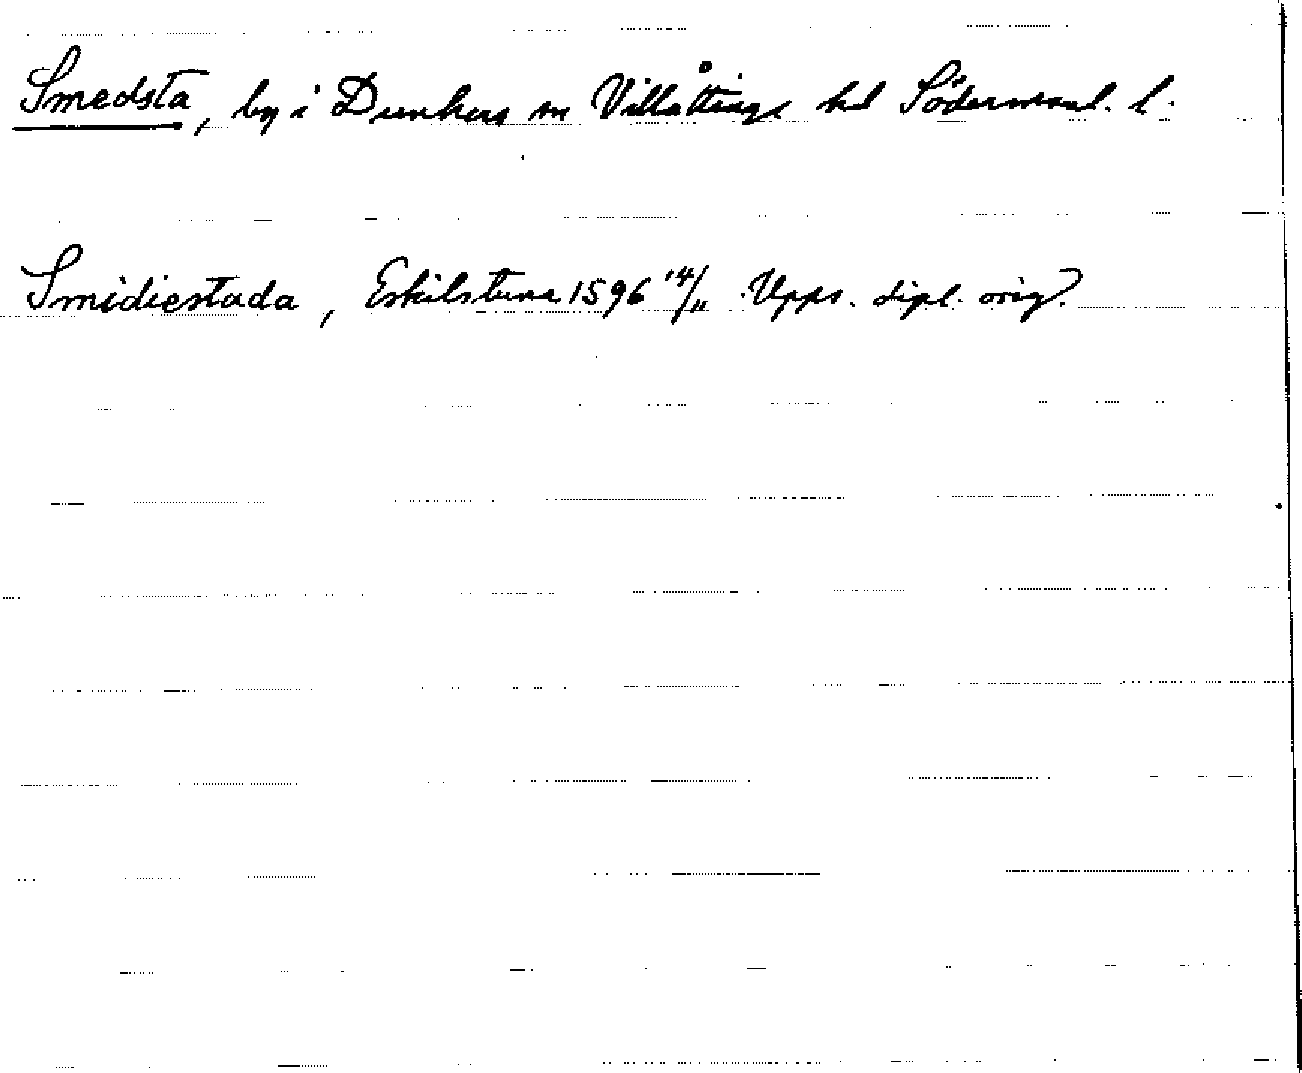 Smedsta, by i Dunkers sn Villåttinge hd Södermanl. l.
Smidiestada, Eskilstuna 1596 14/11 Upps. dipl. orig.